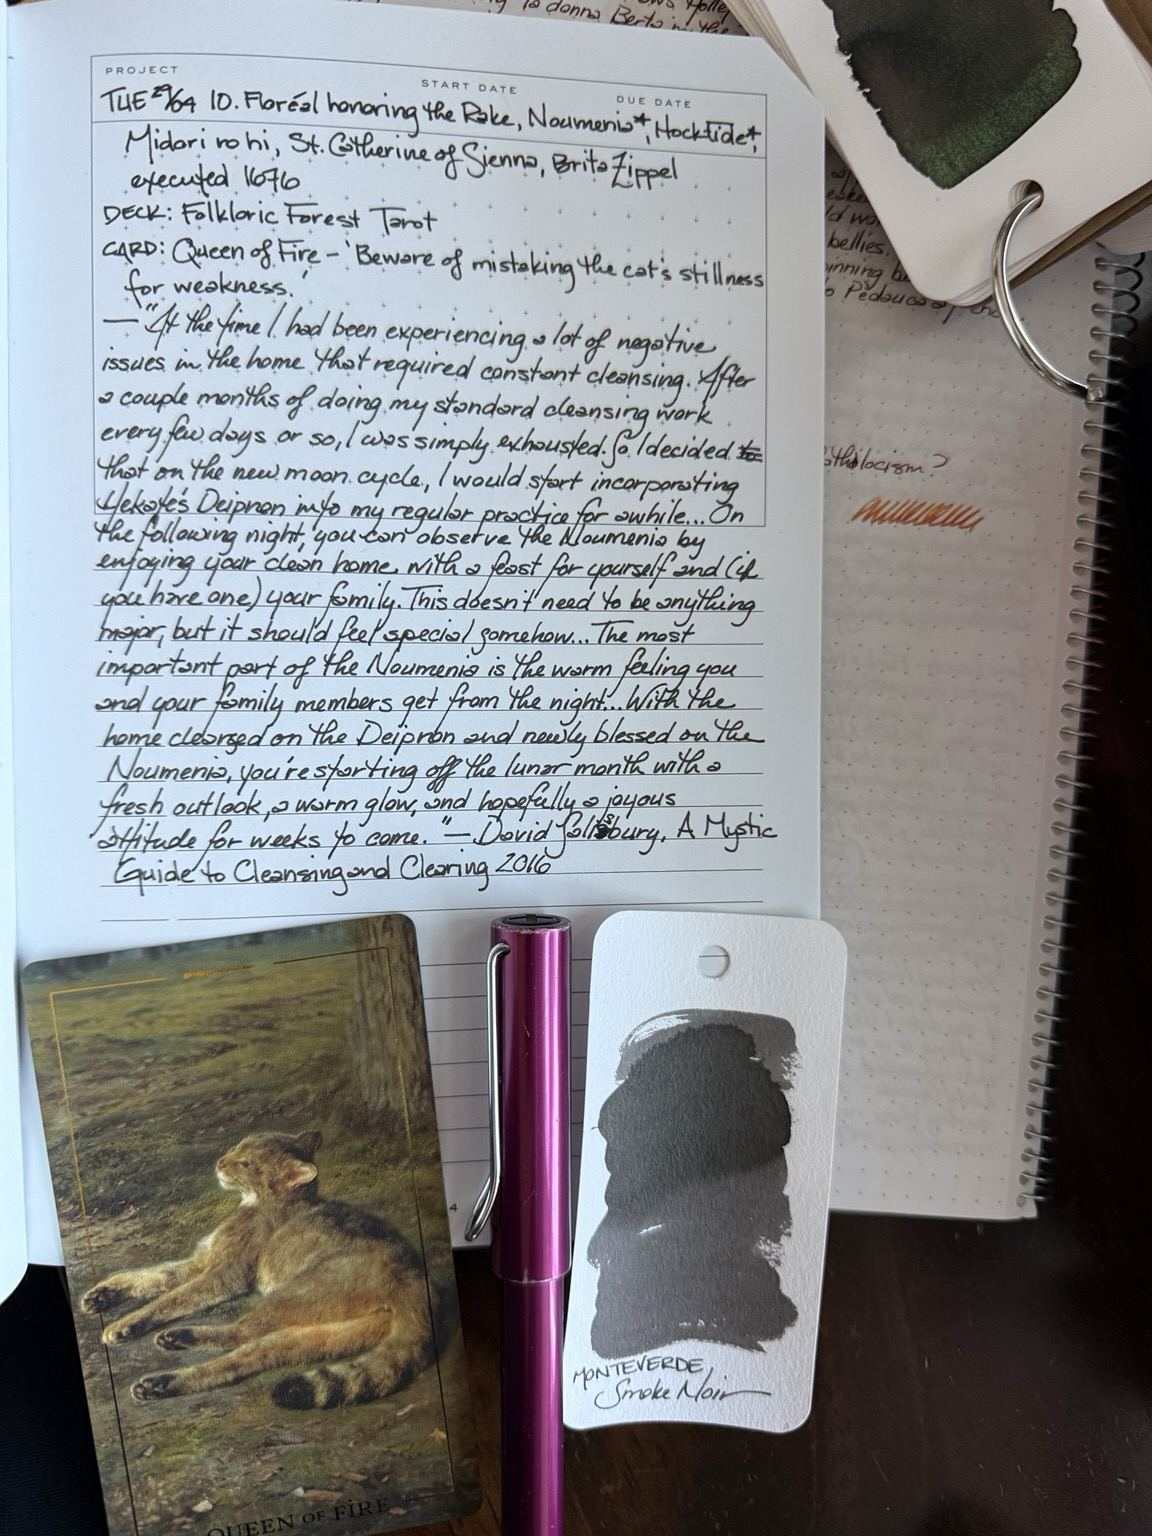 la donna Berta in the
PROJECT
START DATE
DUE DATE
TUE 29/04 10. Floréal honoring the Rake, Noumenia*, Hocktide*,
Midori no hi, St. Catherine of Sienna, Brita Zippel
executed 1676
DECK: Folkloric Forest Tarot
CARD: Queen of Fire – 'Beware of mistaking the cat's stillness
for weakness.'
— "At the time I had been experiencing a lot of negative
issues in the home that required constant cleansing. After
a couple months of doing my standard cleansing work
every few days or so, I was simply exhausted. So I decided to
that on the new moon cycle, I would start incorporating
Hekate's Deipnon into my regular practice for awhile... On
the following night, you can observe the Noumenia by
enjoying your clean home with a feast for yourself and (if
you have one) your family. This doesn't need to be anything
major, but it should feel special somehow... The most
important part of the Noumenia is the warm feeling you
and your family members get from the night... With the
home cleansed on the Deipnon and newly blessed on the
Noumenia, you're starting off the lunar month with a
fresh outlook, a warm glow, and hopefully a joyous
attitude for weeks to come." — David Salisbury, A Mystic
Guide to Cleansing and Clearing 2016
bellies.
4
QUEEN OF FIRE
MONTEVERDE
Smoke Noir